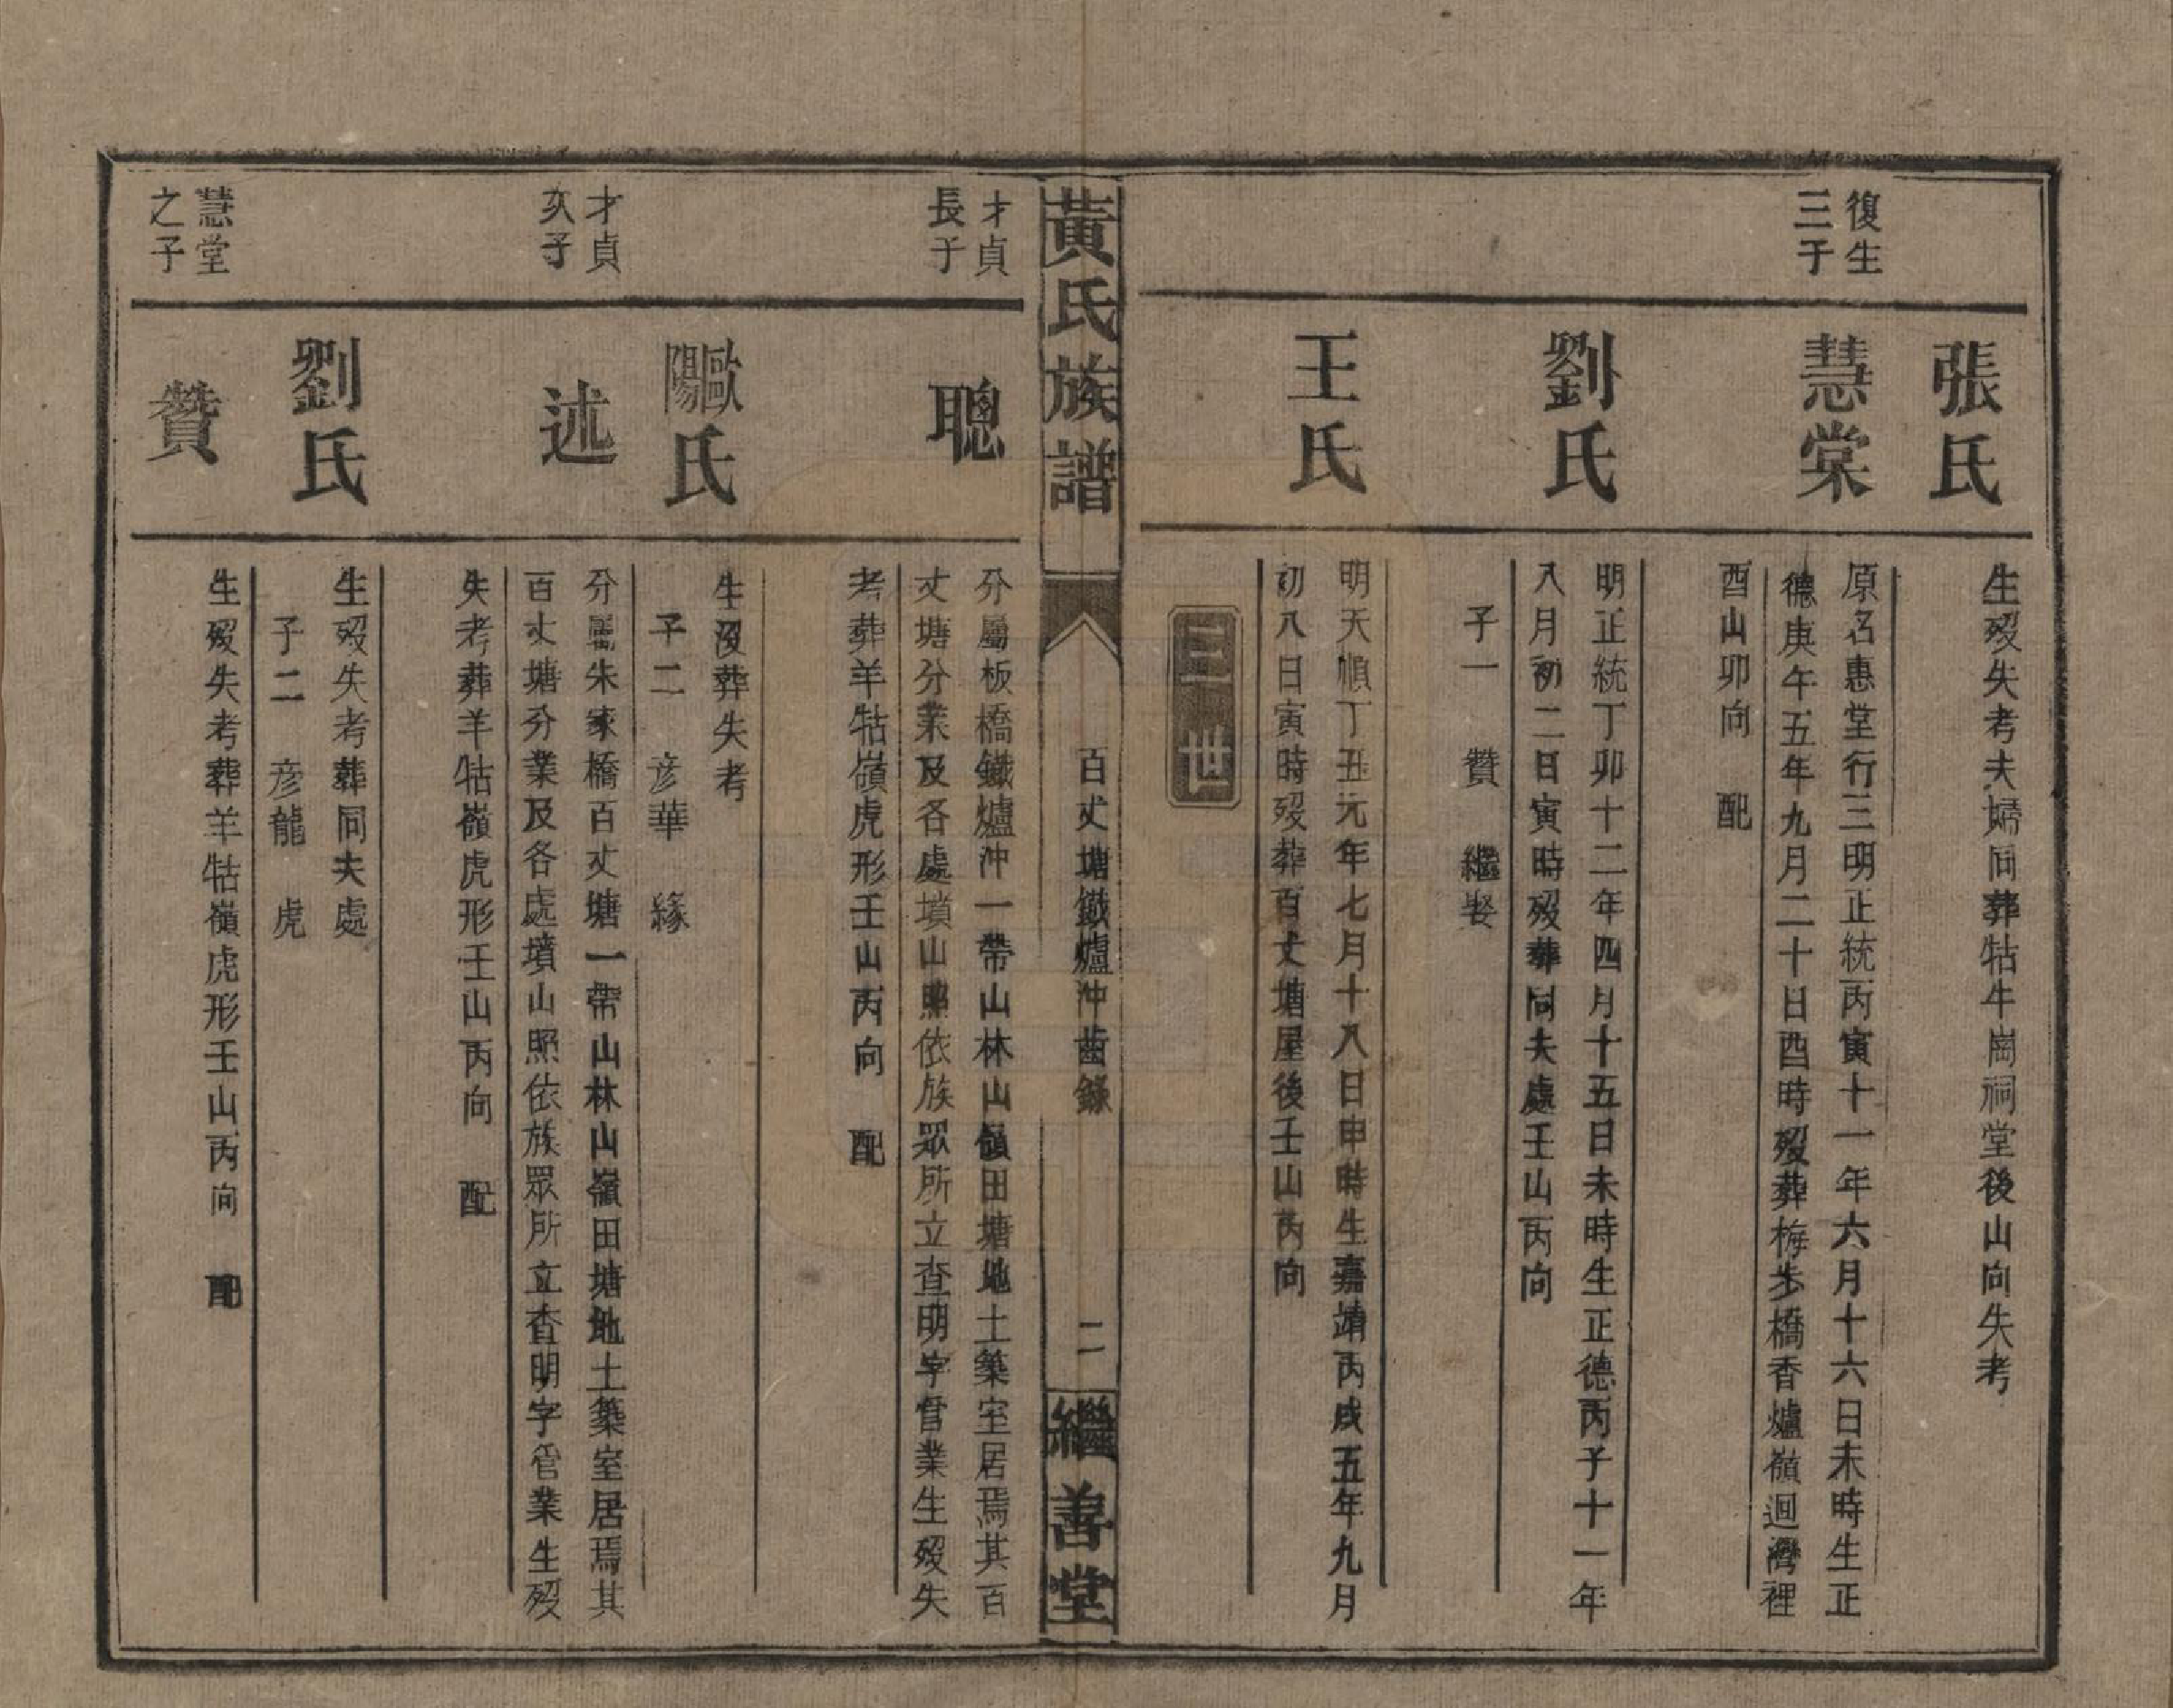 張氏
生歿失考夫婦同葬牯牛崗祠堂後山向失考
復生
三子
慧棠
原名惠堂行三明正統丙寅十一年六月十六日未時生正
德庚午五年九月二十日酉時歿葬梅步橋香爐嶺迴灣裡
酉山卯向 配
劉氏
明正統丁卯十二年四月十五日未時生正德丙子十一年
八月初二日寅時歿葬同夫處壬山丙向
子一 贊 繼娶
王氏
明天順丁丑元年七月十八日申時生嘉靖丙戌五年九月
初八日寅時歿葬百丈塘屋後壬山丙向
三世
黃氏族譜
百丈塘鐵爐沖齒錄
二
繼善堂
才貞
長子
聰
分屬板橋鐵爐沖一帶山林山嶺田塘地土築室居焉其百
丈塘分業及各處墳山照依族眾所立查明字管業生歿失
考葬羊牯嶺虎形壬山丙向 配
歐陽氏
生沒葬失考
子二 彦華 緣
才貞
次子
述
分屬朱家橋百丈塘一帶山林山嶺田塘地土築室居焉其
百丈塘分業及各處墳山照依族眾所立查明字管業生歿
失考葬羊牯嶺虎形壬山丙向 配
劉氏
生歿失考葬同夫處
子二 彦龍 虎
慧堂
之子
贊
生歿失考葬羊牯嶺虎形壬山丙向 配